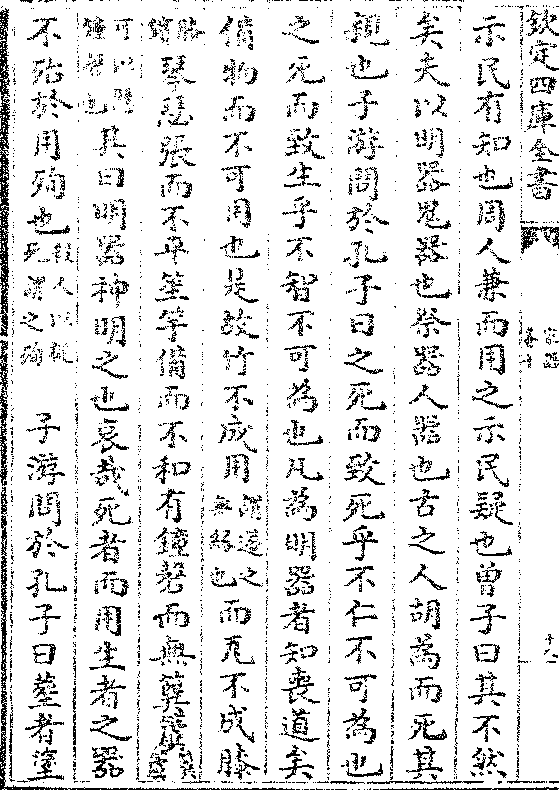 欽定四庫全書
家語
卷十
示民有知也周人兼而用之示民疑也曾子曰其不然
矣夫以明器鬼器也祭器人器也古之人胡為而死其
親也子游問於孔子曰之死而致死乎不仁不可為也
之死而致生乎不智不可為也凡為明器者知喪道矣
備物而不可用也是故竹不成用謂籩之無緣也而瓦不成膝
琴瑟張而不平笙竽備而不和有鐘磬而無簨簴
可以懸鐘磬也其曰明器神明之也哀哉死者而用生者之器
不殆於用殉也殺人以從死謂之殉 子游問於孔子曰葬者塗